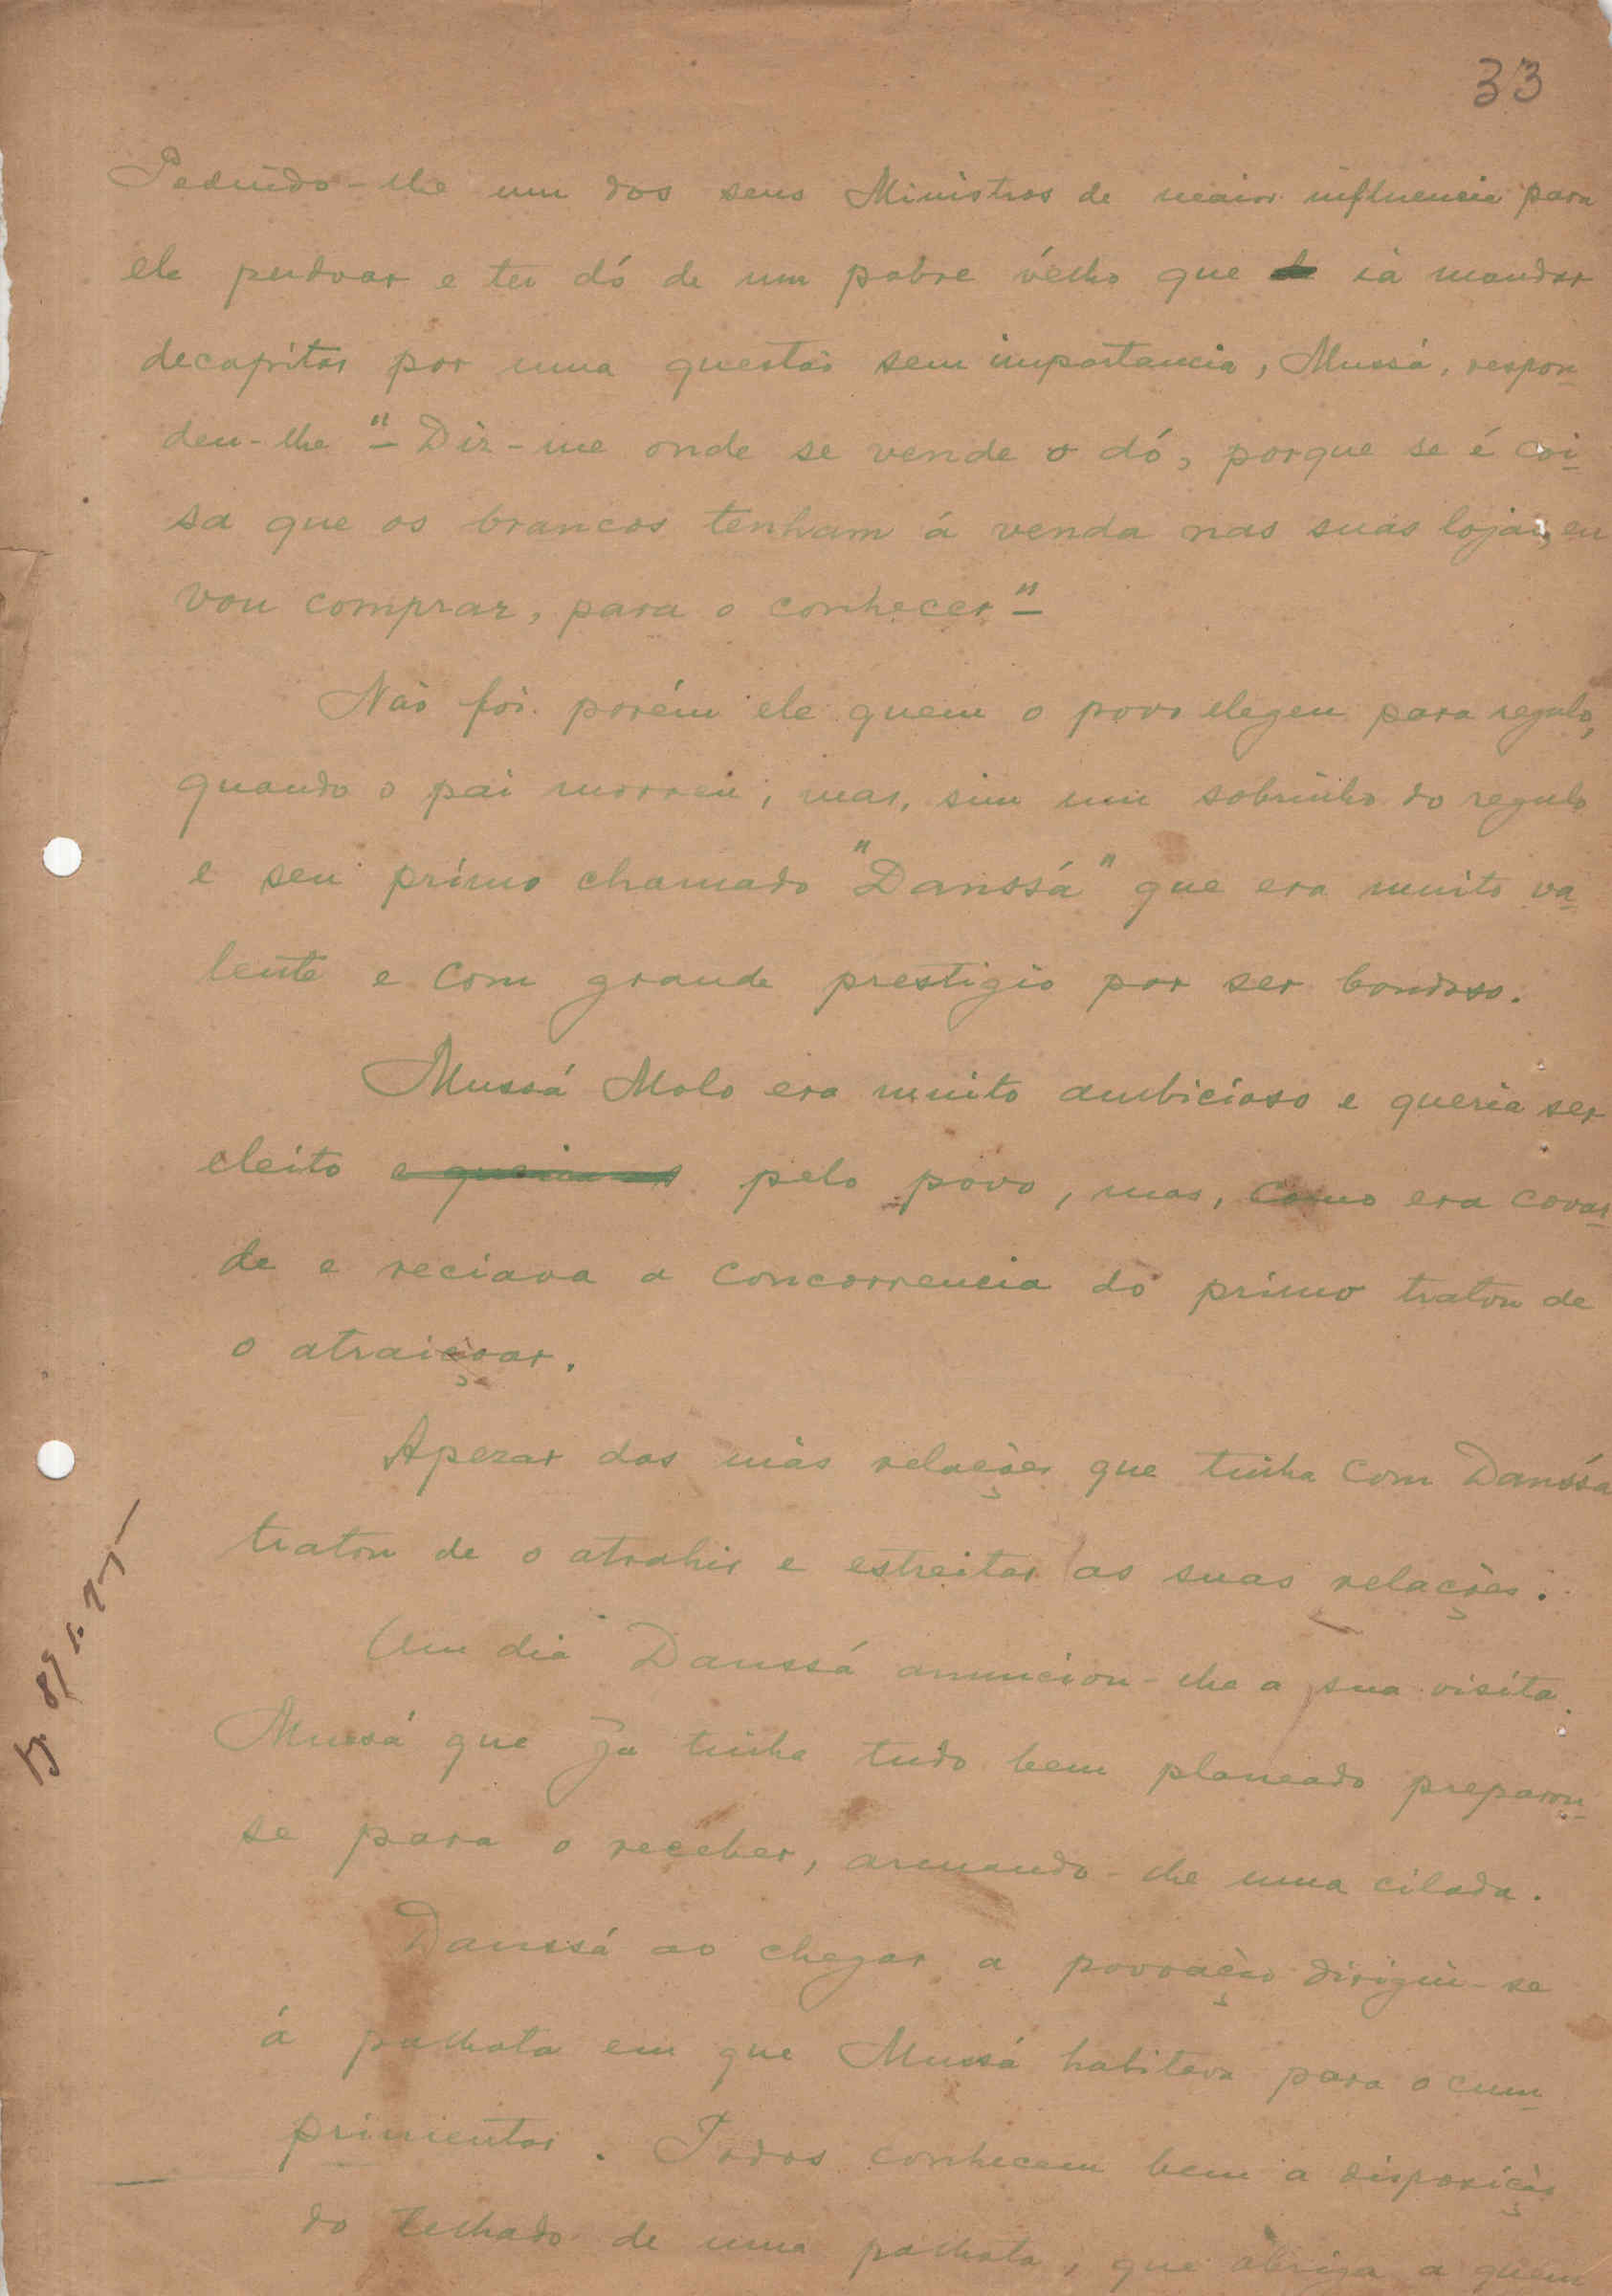 33
Pedindo-lhe um dos seus Ministros de maior influencia para
ele perdoar e ter dó de um pobre vélho que ia mandar
decapitar por uma questão sem importancia, Mussá, respon-
deu-lhe "- Diz-me onde se vende o dó, porque se é coi-
sa que os brancos tenham á venda nas suas lojas, eu
vou comprar, para o conhecer"-
Não foi porém ele quem o povo elegeu para regulo,
quando o pai morreu, mas, sim um sobrinho do regulo
e seu primo chamado "Danssá" que era muito va-
lente e com grande prestigio por ser bondoso.
Mussá Molo era muito ambicioso e queria ser
eleito pelo povo, mas, como era covar-
de e reciava a concorrencia do primo tratou de
o atraiçoar.
Apezar das más relações que tinha com Danssá
tratou de o atrahir e estreitar as suas relações.
Um dia Danssá anunciou-lhe a sua visita.
Mussá que já tinha tudo bem planeado preparou-
se para o receber, armando-lhe uma cilada.
Danssá ao chegar a povoação dirigiu-se
á palhota em que Mussá habitava para o cum-
primentar. Todos conhecem bem a disposição
do telhado de uma palhota, que abriga a quem